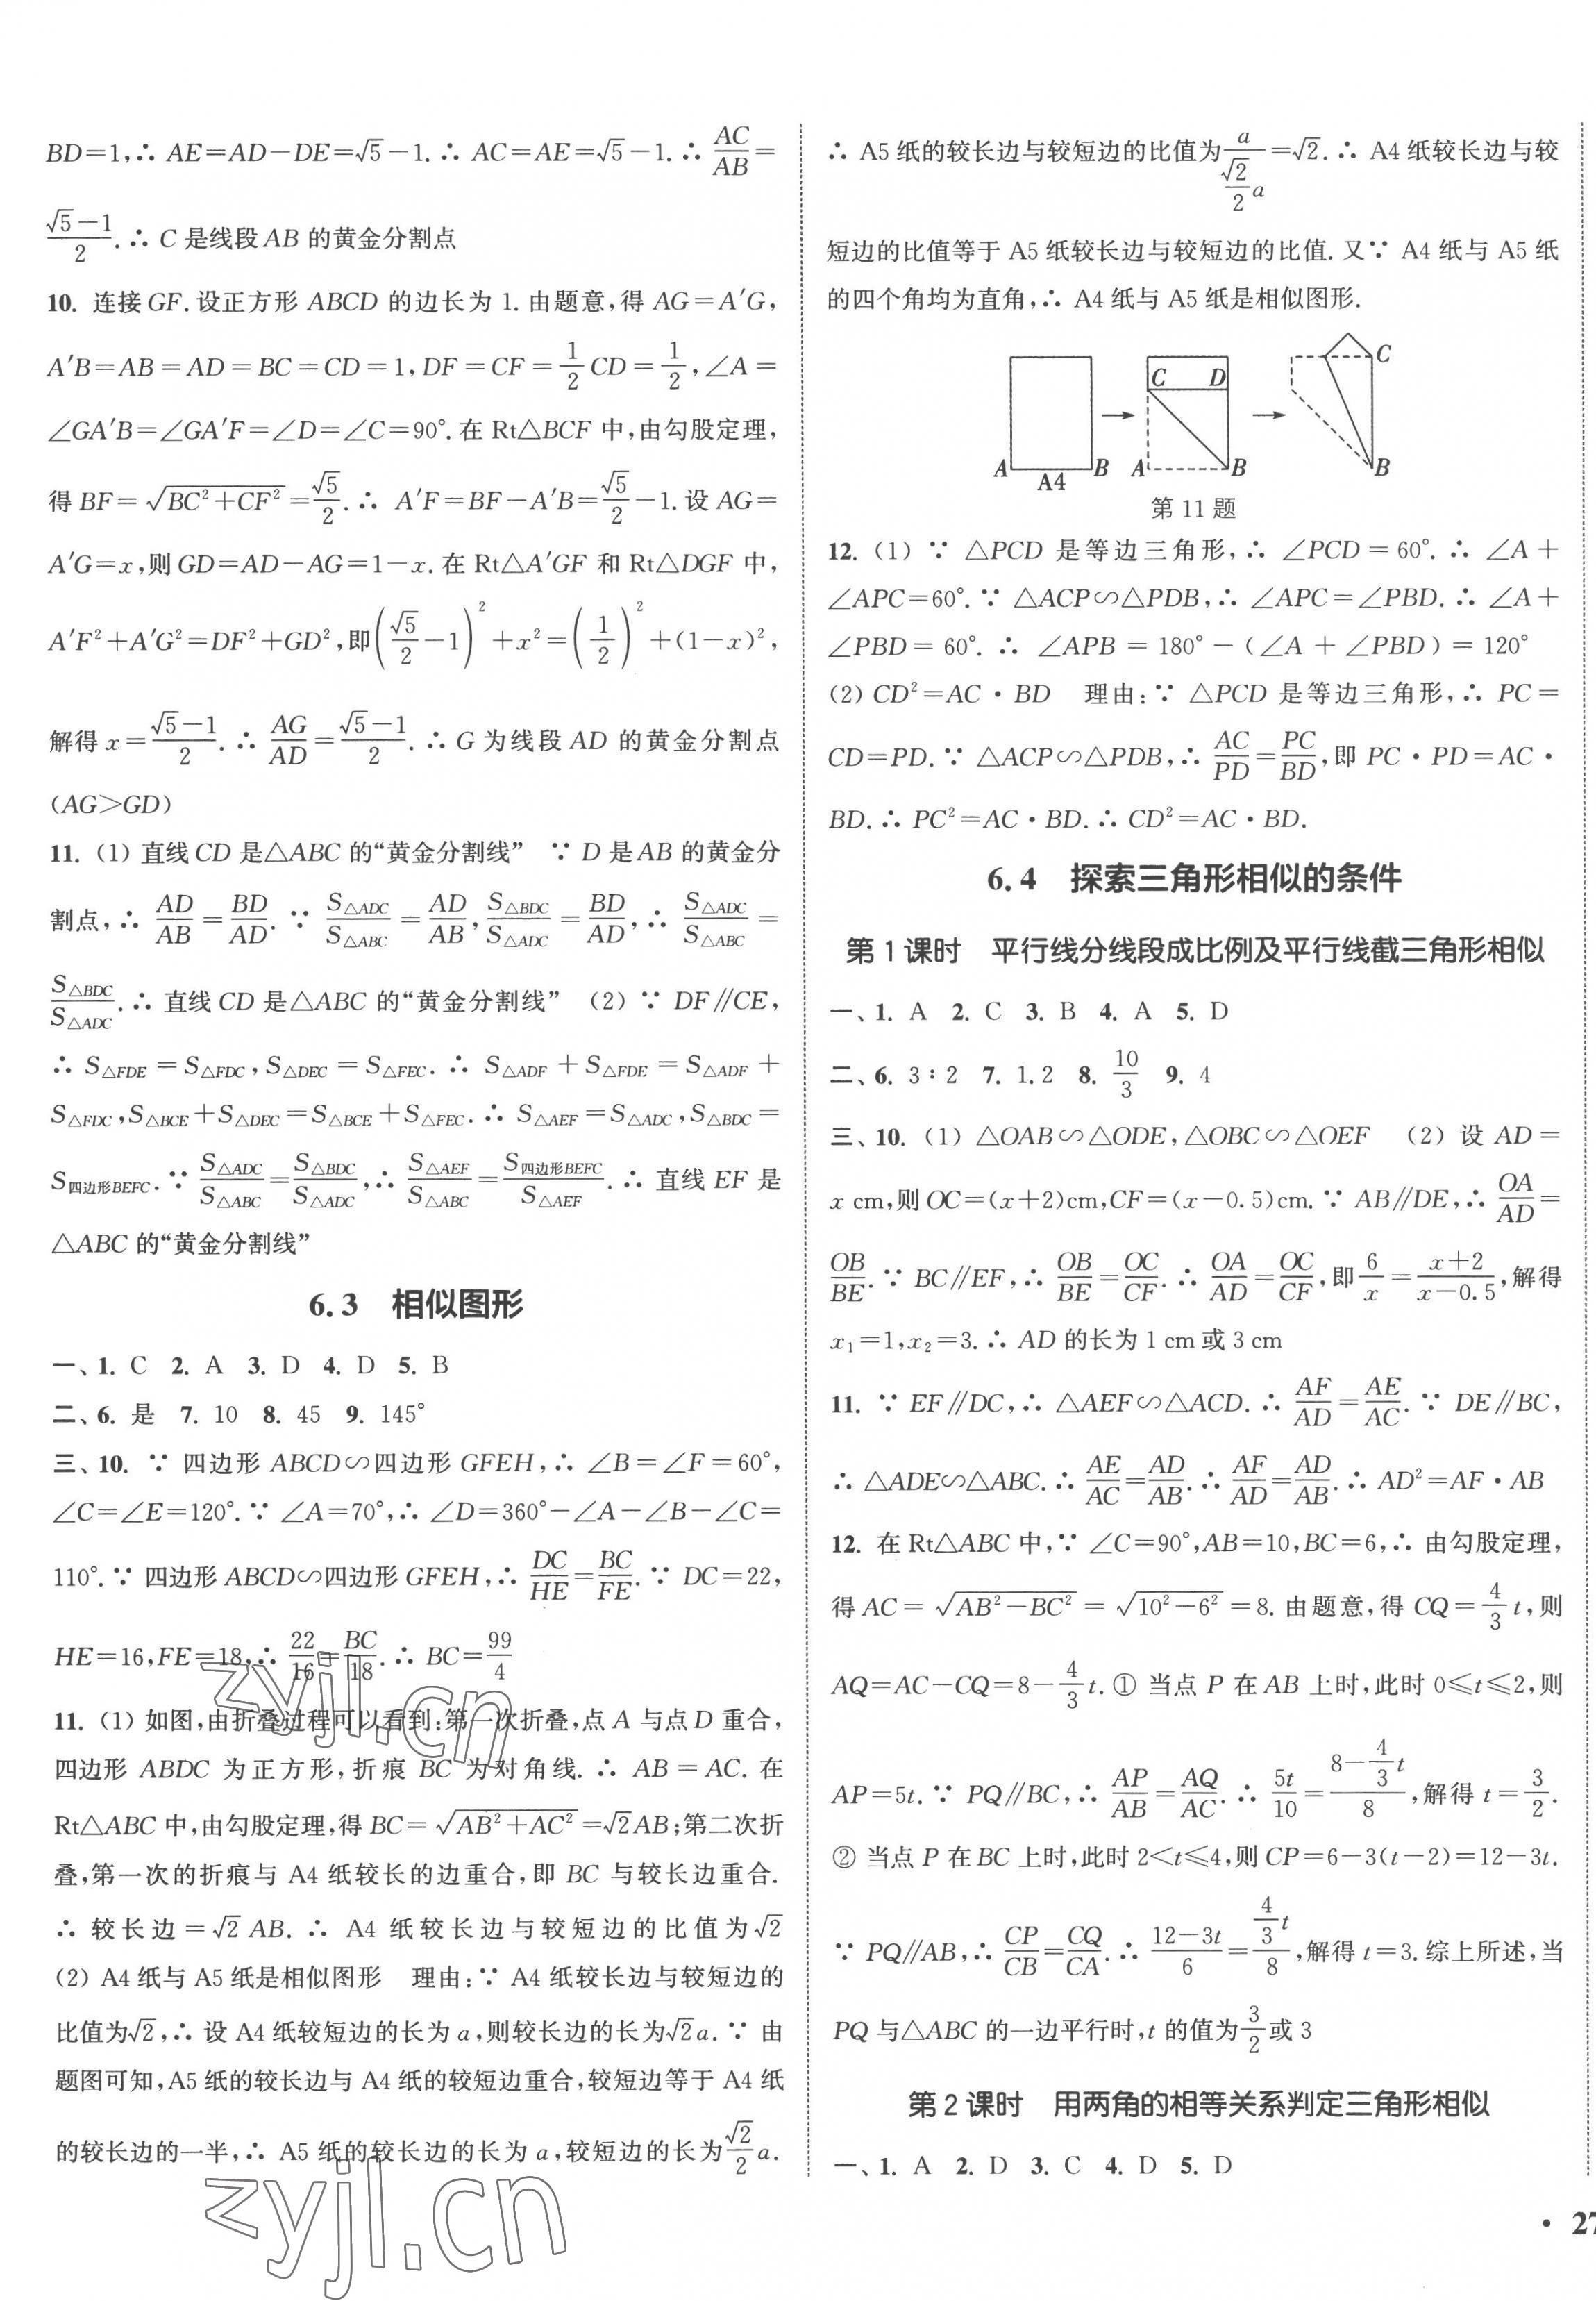 BD=1,∴ AE=AD−DE=√5−1.∴ AC=AE=√5−1.∴ AC/AB=
(√5−1)/2.∴ C 是线段 AB 的黄金分割点
10. 连接 GF.设正方形 ABCD 的边长为 1.由题意,得 AG=A′G,
A′B=AB=AD=BC=CD=1,DF=CF=1/2 CD=1/2,∠A=
∠GA′B=∠GA′F=∠D=∠C=90°.在 Rt△BCF 中,由勾股定理,
得 BF=√(BC²+CF²)=√5/2.∴ A′F=BF−A′B=√5/2−1.设 AG=
A′G=x,则 GD=AD−AG=1−x.在 Rt△A′GF 和 Rt△DGF 中,
A′F²+A′G²=DF²+GD²,即(√5/2−1)²+x²=(1/2)²+(1−x)²,
解得 x=(√5−1)/2.∴ AG/AD=(√5−1)/2.∴ G 为线段 AD 的黄金分割点
(AG>GD)
11.(1) 直线 CD 是△ABC 的“黄金分割线” ∵ D 是 AB 的黄金分
割点,∴ AD/AB=BD/AD.∵ S△ADC/S△ABC=AD/AB,S△BDC/S△ADC=BD/AD,∴ S△ADC/S△ABC=
S△BDC/S△ADC.∴ 直线 CD 是△ABC 的“黄金分割线” (2) ∵ DF∥CE,
∴ S△FDE=S△FDC,S△DEC=S△FEC.∴ S△ADF+S△FDE=S△ADF+
S△FDC,S△BCE+S△DEC=S△BCE+S△FEC.∴ S△AEF=S△ADC,S△BDC=
S四边形BEFC.∵ S△ADC/S△ABC=S△BDC/S△ADC,∴ S△AEF/S△ABC=S四边形BEFC/S△AEF.∴ 直线 EF 是
△ABC 的“黄金分割线”
6.3 相似图形
一、1. C 2. A 3. D 4. D 5. B
二、6. 是 7. 10 8. 45 9. 145°
三、10. ∵ 四边形 ABCD∽四边形 GFEH,∴ ∠B=∠F=60°,
∠C=∠E=120°.∵ ∠A=70°,∴ ∠D=360°−∠A−∠B−∠C=
110°.∵ 四边形 ABCD∽四边形 GFEH,∴ DC/HE=BC/FE.∵ DC=22,
HE=16,FE=18,∴ 22/16=BC/18.∴ BC=99/4
11.(1) 如图,由折叠过程可以看到:第一次折叠,点 A 与点 D 重合,
四边形 ABDC 为正方形,折痕 BC 为对角线.∴ AB=AC.在
Rt△ABC 中,由勾股定理,得 BC=√(AB²+AC²)=√2AB;第二次折
叠,第一次的折痕与 A4 纸较长的边重合,即 BC 与较长边重合.
∴ 较长边=√2 AB.∴ A4 纸较长边与较短边的比值为√2
(2) A4 纸与 A5 纸是相似图形 理由:∵ A4 纸较长边与较短边的
比值为√2,∴ 设 A4 纸较短边的长为 a,则较长边的长为√2a.∵ 由
题图可知,A5 纸的较长边与 A4 纸的较短边重合,较短边等于 A4 纸
的较长边的一半,∴ A5 纸的较长边的长为 a,较短边的长为√2/2 a.
∴ A5 纸的较长边与较短边的比值为a/(√2/2 a)=√2.∴ A4 纸较长边与较
短边的比值等于 A5 纸较长边与较短边的比值.又∵ A4 纸与 A5 纸
的四个角均为直角,∴ A4 纸与 A5 纸是相似图形.
A B A4 C D A B C B
第 11 题
12.(1) ∵ △PCD 是等边三角形,∴ ∠PCD=60°.∴ ∠A+
∠APC=60°.∵ △ACP∽△PDB,∴ ∠APC=∠PBD.∴ ∠A+
∠PBD=60°.∴ ∠APB=180°−(∠A+∠PBD)=120°
(2) CD²=AC·BD 理由:∵ △PCD 是等边三角形,∴ PC=
CD=PD.∵ △ACP∽△PDB,∴ AC/PD=PC/BD,即 PC·PD=AC·
BD.∴ PC²=AC·BD.∴ CD²=AC·BD.
6.4 探索三角形相似的条件
第 1 课时 平行线分线段成比例及平行线截三角形相似
一、1. A 2. C 3. B 4. A 5. D
二、6. 3∶2 7. 1.2 8. 10/3 9. 4
三、10.(1) △OAB∽△ODE,△OBC∽△OEF (2) 设 AD=
x cm,则 OC=(x+2)cm,CF=(x−0.5)cm.∵ AB∥DE,∴ OA/AD=
OB/BE.∵ BC∥EF,∴ OB/BE=OC/CF.∴ OA/AD=OC/CF,即6/x=(x+2)/(x−0.5),解得
x₁=1,x₂=3.∴ AD 的长为 1 cm 或 3 cm
11. ∵ EF∥DC,∴ △AEF∽△ACD.∴ AF/AD=AE/AC.∵ DE∥BC,
∴ △ADE∽△ABC.∴ AE/AC=AD/AB.∴ AF/AD=AD/AB.∴ AD²=AF·AB
12. 在 Rt△ABC 中,∵ ∠C=90°,AB=10,BC=6,∴ 由勾股定理,
得 AC=√(AB²−BC²)=√(10²−6²)=8.由题意,得 CQ=4/3 t,则
AQ=AC−CQ=8−4/3 t.① 当点 P 在 AB 上时,此时 0≤t≤2,则
AP=5t.∵ PQ∥BC,∴ AP/AB=AQ/AC.∴ 5t/10=(8−4/3 t)/8,解得 t=3/2.
② 当点 P 在 BC 上时,此时 2<t≤4,则 CP=6−3(t−2)=12−3t.
∵ PQ∥AB,∴ CP/CB=CQ/CA.∴ (12−3t)/6=(4/3 t)/8,解得 t=3.综上所述,当
PQ 与△ABC 的一边平行时,t 的值为3/2或 3
第 2 课时 用两角的相等关系判定三角形相似
一、1. A 2. D 3. C 4. D 5. D
· 27
zyjl.cn
zyjl.cn